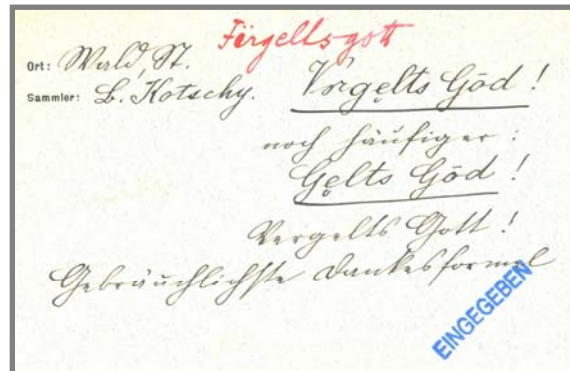 Förgeltsgott
Ort: Wald, St.
Sammler: L. Kotschy. Vrgẹlts Gōd !
noch häufiger :
Gẹlts Gōd !
Vergelts Gott !
Gebräuchlichste Dankesformel
EINGEGEBEN